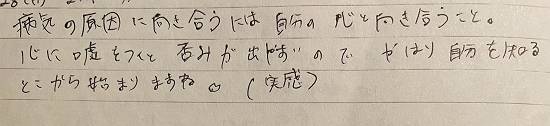 病気の原因に向き合うには自分の心と向き合うこと。
心に嘘をつくと歪みが出やすいので やはり自分を知る
とこから始まりますね。(実感)